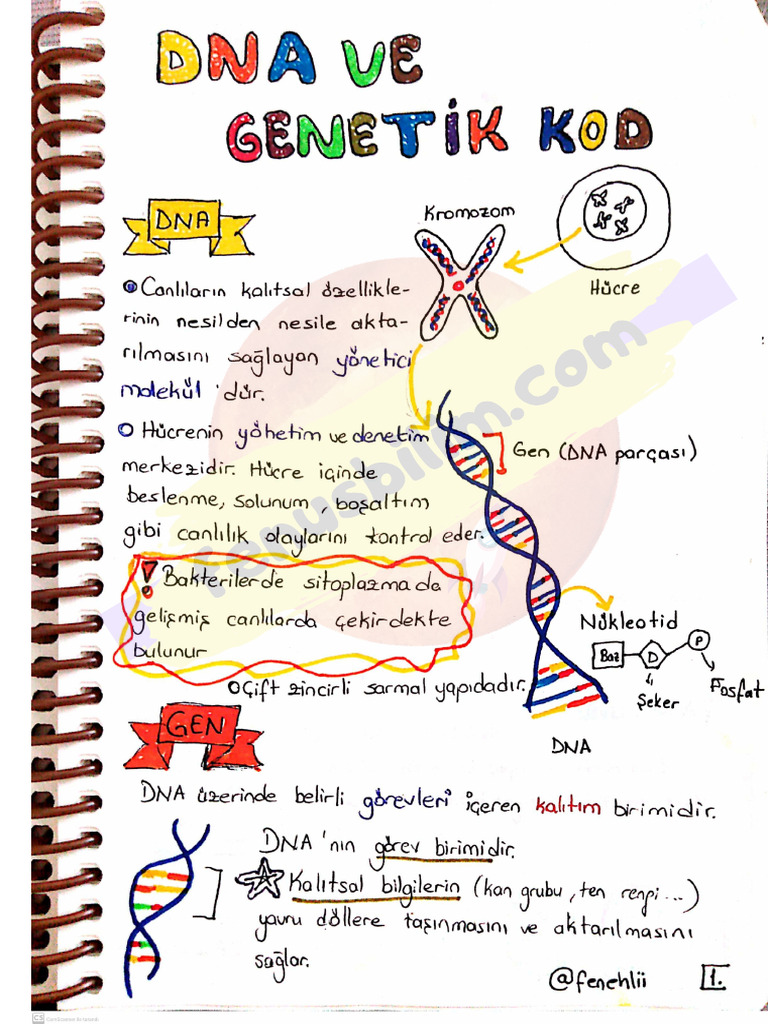 DNA VE
GENETİK KOD
DNA
Canlıların kalıtsal özellikle-
rinin nesilden nesile akta-
rılmasını sağlayan yönetici
molekül 'dür.
Hücrenin yönetim ve denetim
merkezidir. Hücre içinde
beslenme, solunum, boşaltım
gibi canlılık olaylarını kontrol eder.
! Bakterilerde sitoplazmada
gelişmiş canlılarda çekirdekte
bulunur
Çift zincirli sarmal yapıdadır.
Kromozom
Hücre
Gen (DNA parçası)
Nükleotid
Baz D P
Şeker
Fosfat
DNA
GEN
DNA üzerinde belirli görevleri içeren kalıtım birimidir.
DNA 'nın görev birimidir.
Kalıtsal bilgilerin (kan grubu, ten rengi...)
yavru döllere taşınmasını ve aktarılmasını
sağlar.
@fenehlii
1.
fenusbilim.com
CS